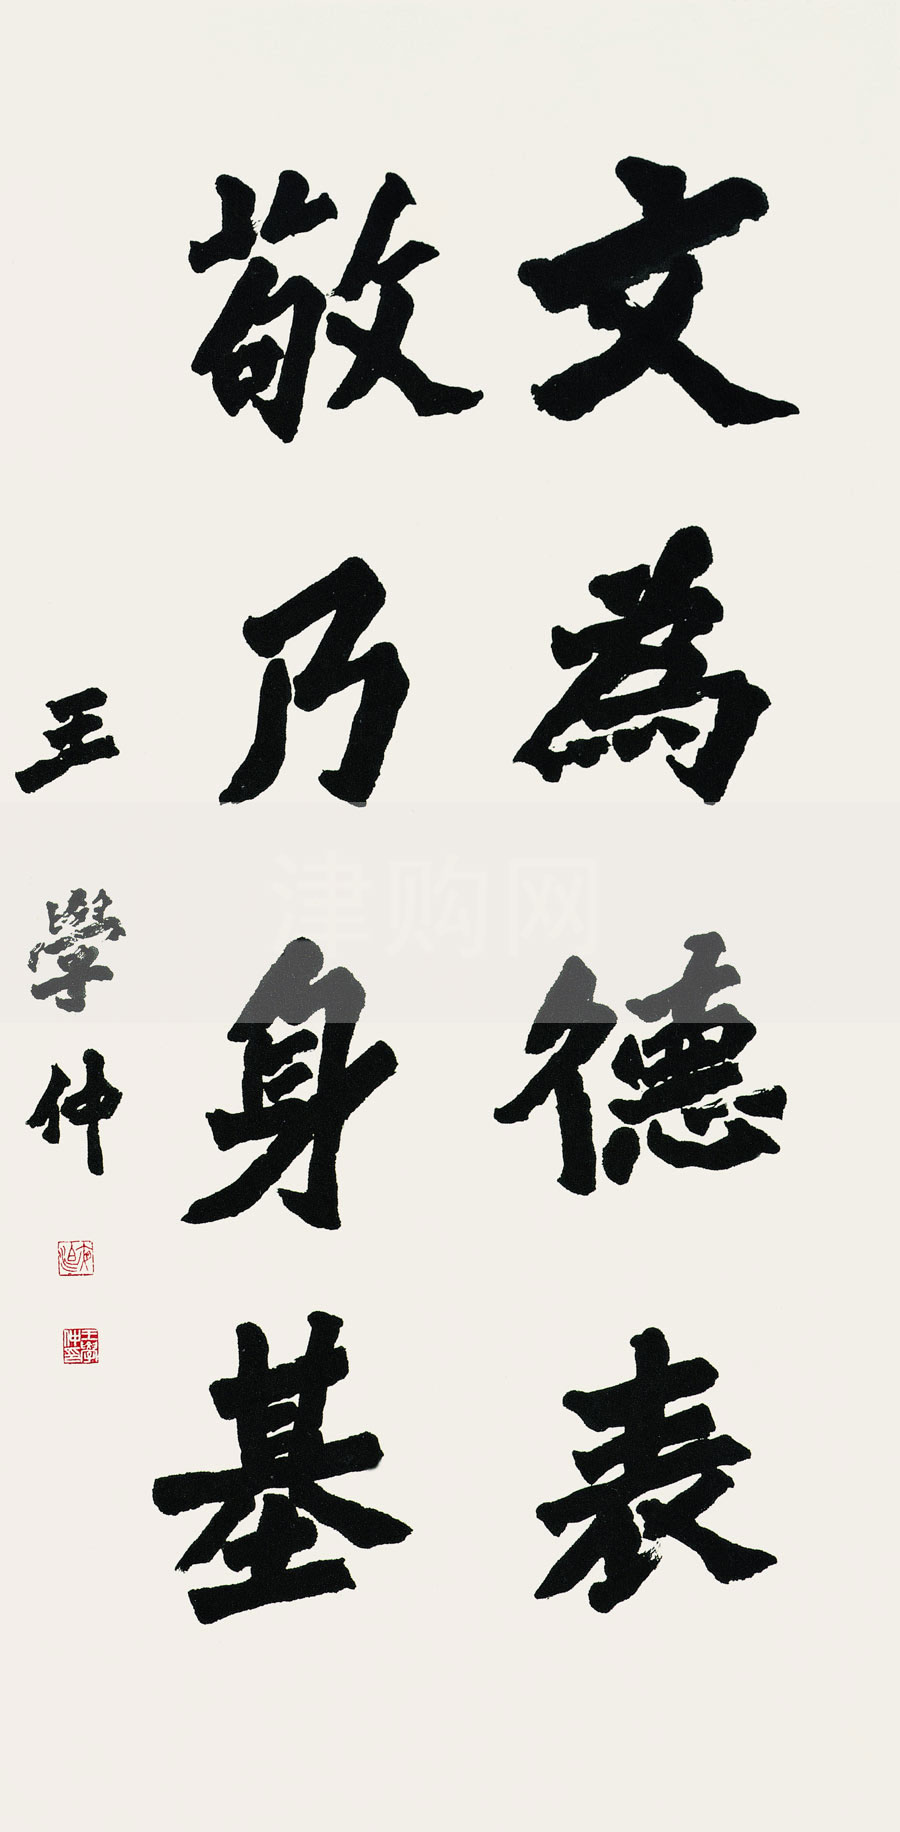 文為德表
敬乃身基
王學仲
王學仲印
津购网